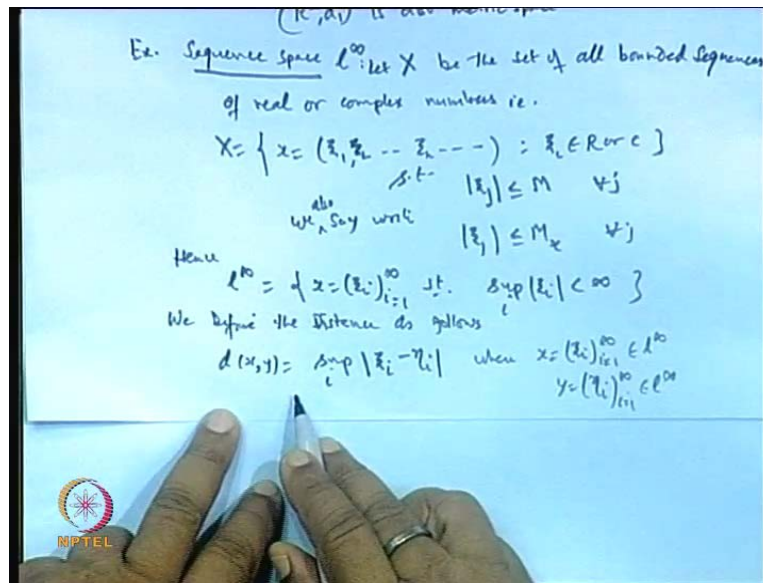 (R , d1) is also metric space
Ex. Sequence space l^∞ : let X be the set of all bounded sequences
of real or complex numbers i.e.
X = { x = (ξ1, ξ2 -- ξn --- ) : ξi ∈ R or C }
s.t. |ξj| ≤ M ∀j
also
We ^ say write |ξj| ≤ Mx ∀j
Hence
l^∞ = { x = (ξi)_{i=1}^∞ st. sup_i |ξi| < ∞ }
We define the distance as follows
d(x,y) = sup_i |ξi - ηi| when x = (ξi)_{i=1}^∞ ∈ l^∞
y = (ηi)_{i=1}^∞ ∈ l^∞
NPTEL